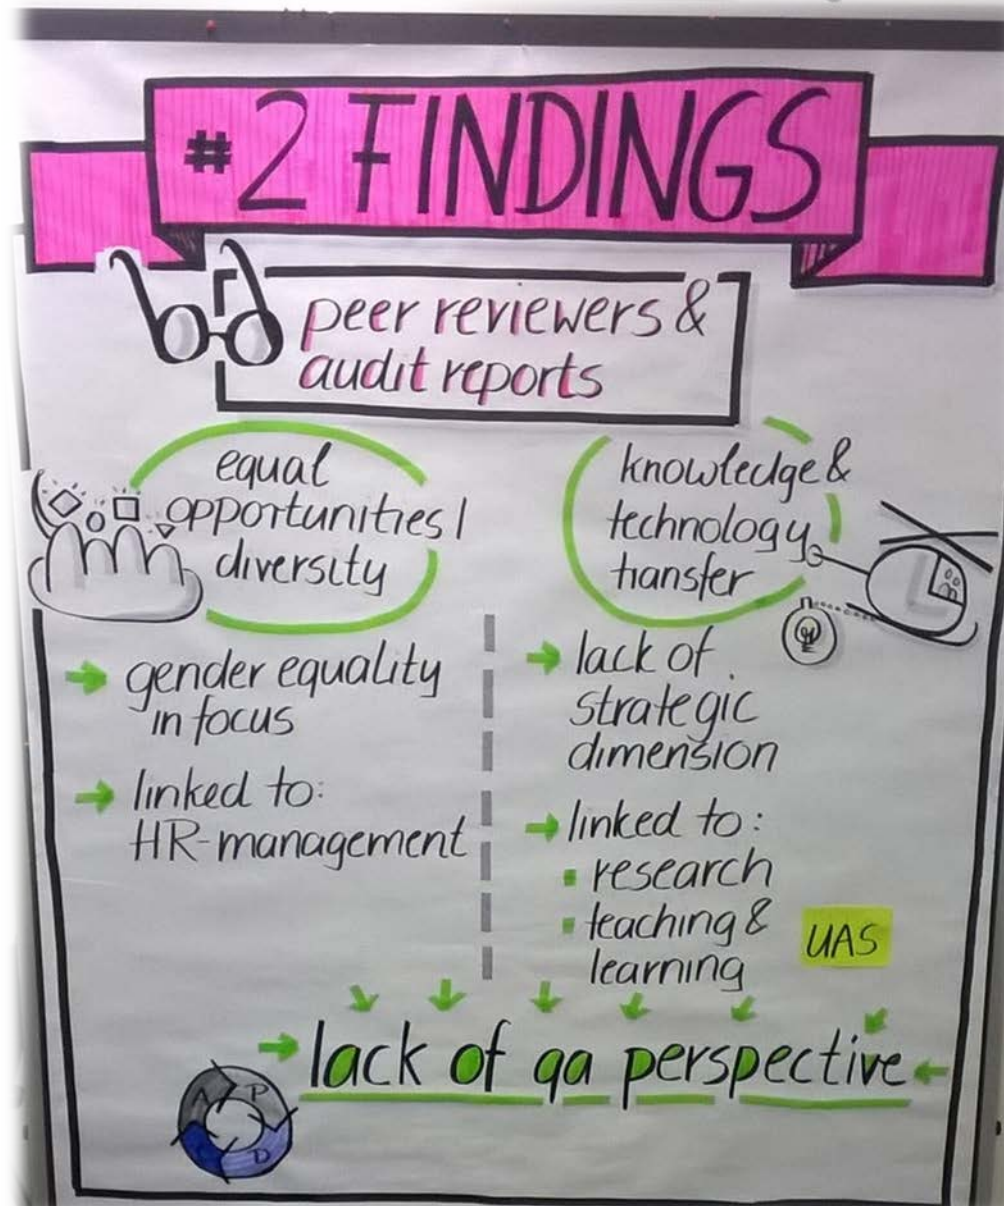 #2 FINDINGS
peer reviewers &
audit reports
equal
opportunities/
diversity
gender equality
in focus
linked to:
HR-management
knowledge &
technology
transfer
lack of
strategic
dimension
linked to:
research
teaching &
learning
UAS
lack of qa perspective
A P
D